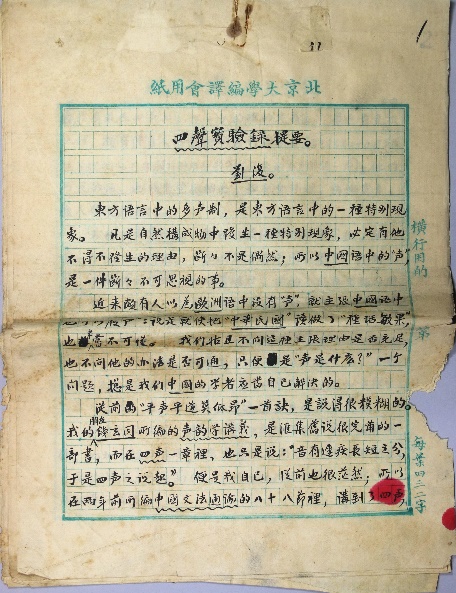 1
北京大學編譯會用紙
四聲實驗錄提要。
劉復。
東方語言中的多声制,是東方語言中的一種特别現
象。 凡是自然構成物中發生一種特别現象,必定有他
不得不發生的理由,斷々不是偶然;所以中國語中的"声",
是一件斷々不可忽視的事。
近來頗有人以為歐洲語中没有"声",就主張中國語中
就使把"中華民國"讀做了
也不可懂。 我們姑且不問這種主張理由是否充足,
也不問他的办法是否可通,只便是"声是什么?"一个
問題,總是我們中国的学者應該自己解決的。
從前的"平声平道莫低昂"一首訣,是説得很模糊的。
我的朋友錢玄同所編的声韵学講義,是匯集舊說很完備的一
部書,而在四声一章裡,也只是說:"音有遲疾長短之分,
于是四声之说起"。 便是我自己,從前也很茫然;所以
在兩年前所編中國文法通論的八十八節裡,講到了四声,
橫行用的
第
每葉四二二字